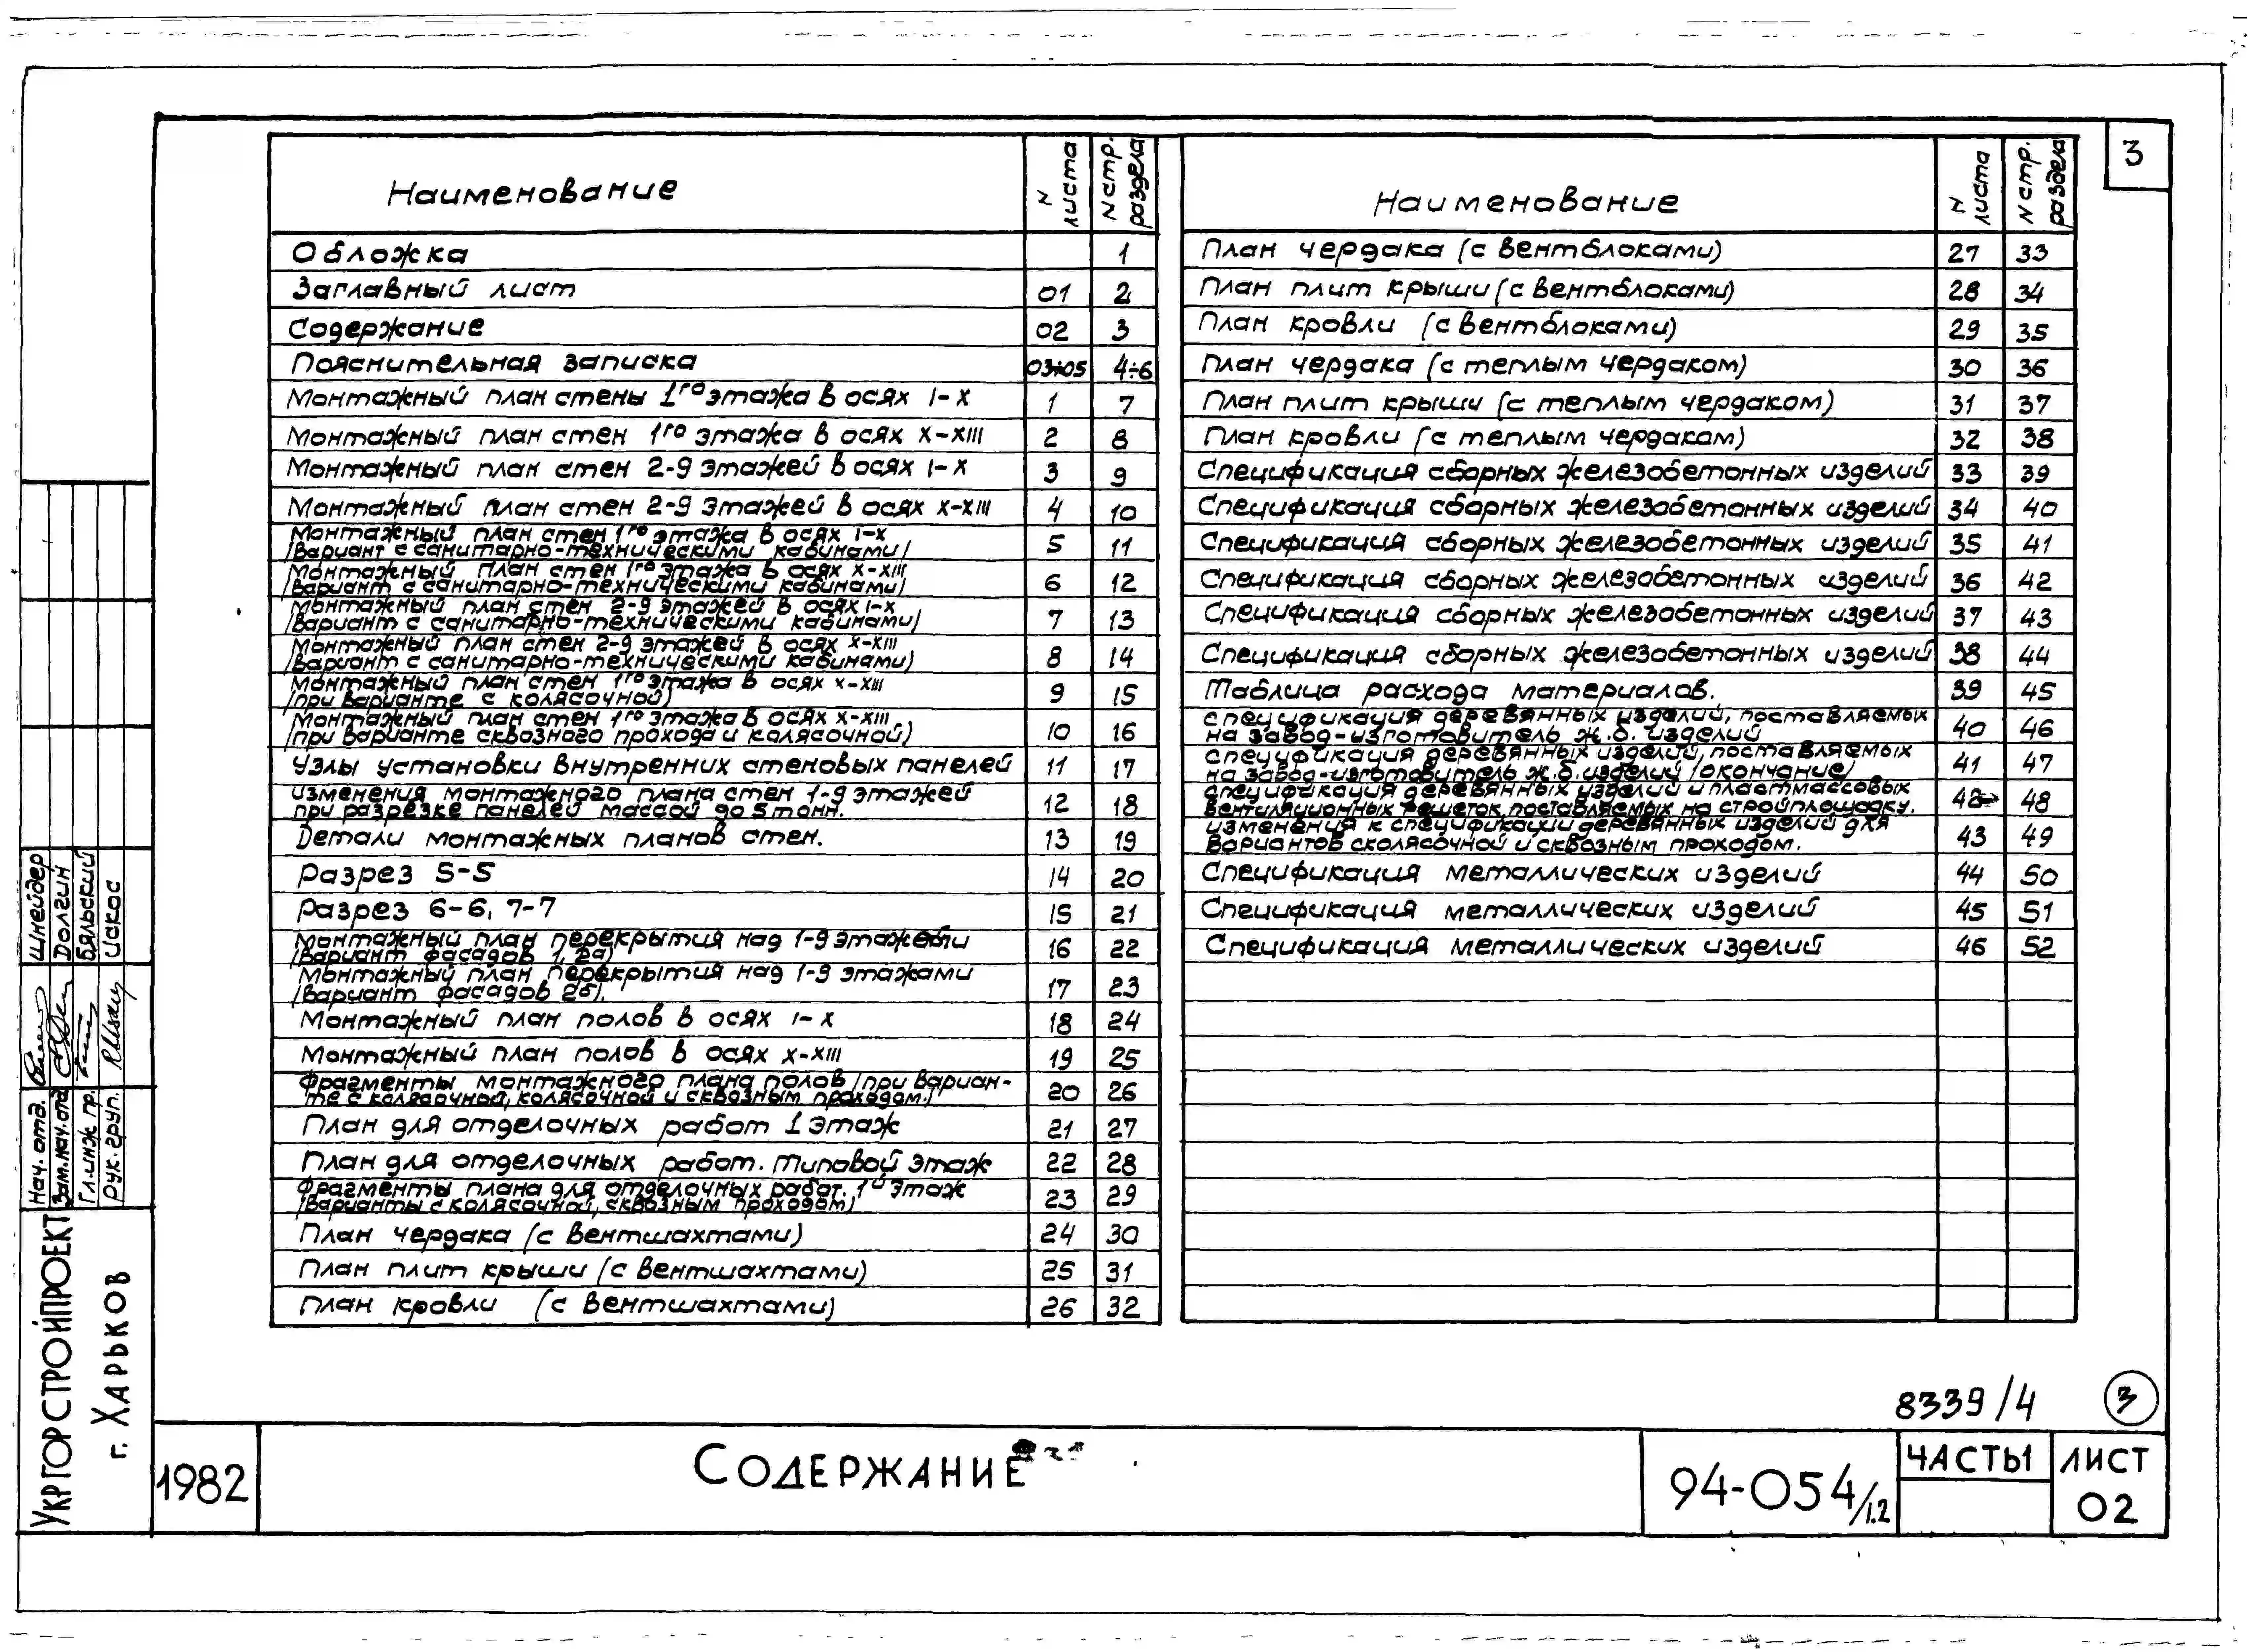 3
Наименование N листа N стр. раздела
Обложка 1
Заглавный лист 01 2
Содержание 02 3
Пояснительная записка 03÷05 4÷6
Монтажный план стены 1го этажа в осях I-X 1 7
Монтажный план стен 1го этажа в осях X-XIII 2 8
Монтажный план стен 2-9 этажей в осях I-X 3 9
Монтажный план стен 2-9 этажей в осях X-XIII 4 10
Монтажный план стен 1го этажа в осях I-X
/вариант с санитарно-техническими кабинами/ 5 11
Монтажный план стен 1го этажа в осях X-XIII
/вариант с санитарно-техническими кабинами) 6 12
Монтажный план стен 2-9 этажей в осях I-X
/вариант с санитарно-техническими кабинами/ 7 13
Монтажный план стен 2-9 этажей в осях X-XIII
/вариант с санитарно-техническими кабинами) 8 14
Монтажный план стен 1го этажа в осях X-XIII
/при варианте с колясочной) 9 15
Монтажный план стен 1го этажа в осях X-XIII
/при варианте сквозного прохода и колясочной) 10 16
Узлы установки внутренних стеновых панелей 11 17
Изменения монтажного плана стен 1-9 этажей
при разрезке панелей массой до 5 тонн. 12 18
Детали монтажных планов стен. 13 19
Разрез 5-5 14 20
Разрез 6-6, 7-7 15 21
Монтажный план перекрытия над 1-9 этажами
/вариант фасадов 1, 2а) 16 22
Монтажный план перекрытия над 1-9 этажами
/вариант фасадов 2б). 17 23
Монтажный план полов в осях I-X 18 24
Монтажный план полов в осях X-XIII 19 25
Фрагменты монтажного плана полов /при вариан-
те с колясочной, колясочной и сквозным проходом./ 20 26
План для отделочных работ 1 этаж 21 27
План для отделочных работ. Типовой этаж 22 28
Фрагменты плана для отделочных работ. 1й этаж
/варианты с колясочной, сквозным проходом) 23 29
План чердака (с вентшахтами) 24 30
План плит крыши (с вентшахтами) 25 31
План кровли (с вентшахтами) 26 32
Наименование N листа N стр. раздела
План чердака (с вентблоками) 27 33
План плит крыши (с вентблоками) 28 34
План кровли (с вентблоками) 29 35
План чердака (с теплым чердаком) 30 36
План плит крыши (с теплым чердаком) 31 37
План кровли (с теплым чердаком) 32 38
Спецификация сборных железобетонных изделий 33 39
Спецификация сборных железобетонных изделий 34 40
Спецификация сборных железобетонных изделий 35 41
Спецификация сборных железобетонных изделий 36 42
Спецификация сборных железобетонных изделий 37 43
Спецификация сборных железобетонных изделий 38 44
Таблица расхода материалов. 39 45
Спецификация деревянных изделий, поставляемых
на завод-изготовитель ж.б. изделий 40 46
Спецификация деревянных изделий, поставляемых
на завод-изготовитель ж.б. изделий /окончание/ 41 47
Спецификация деревянных изделий и пластмассовых
вентиляционных решеток, поставляемых на стройплощадку. 42 48
Изменения к спецификации деревянных изделий для
вариантов с колясочной и сквозным проходом. 43 49
Спецификация металлических изделий 44 50
Спецификация металлических изделий 45 51
Спецификация металлических изделий 46 52
Шнейдер
Долгин
Бяльский
Искос
Нач. отд.
Зам. нач. отд
Гл. инж. пр.
Рук. груп.
УКРГОРСТРОЙПРОЕКТ
г. ХАРЬКОВ
8339/4 3
1982
СОДЕРЖАНИЕ
94-054/1.2
ЧАСТЬ 1
ЛИСТ
02